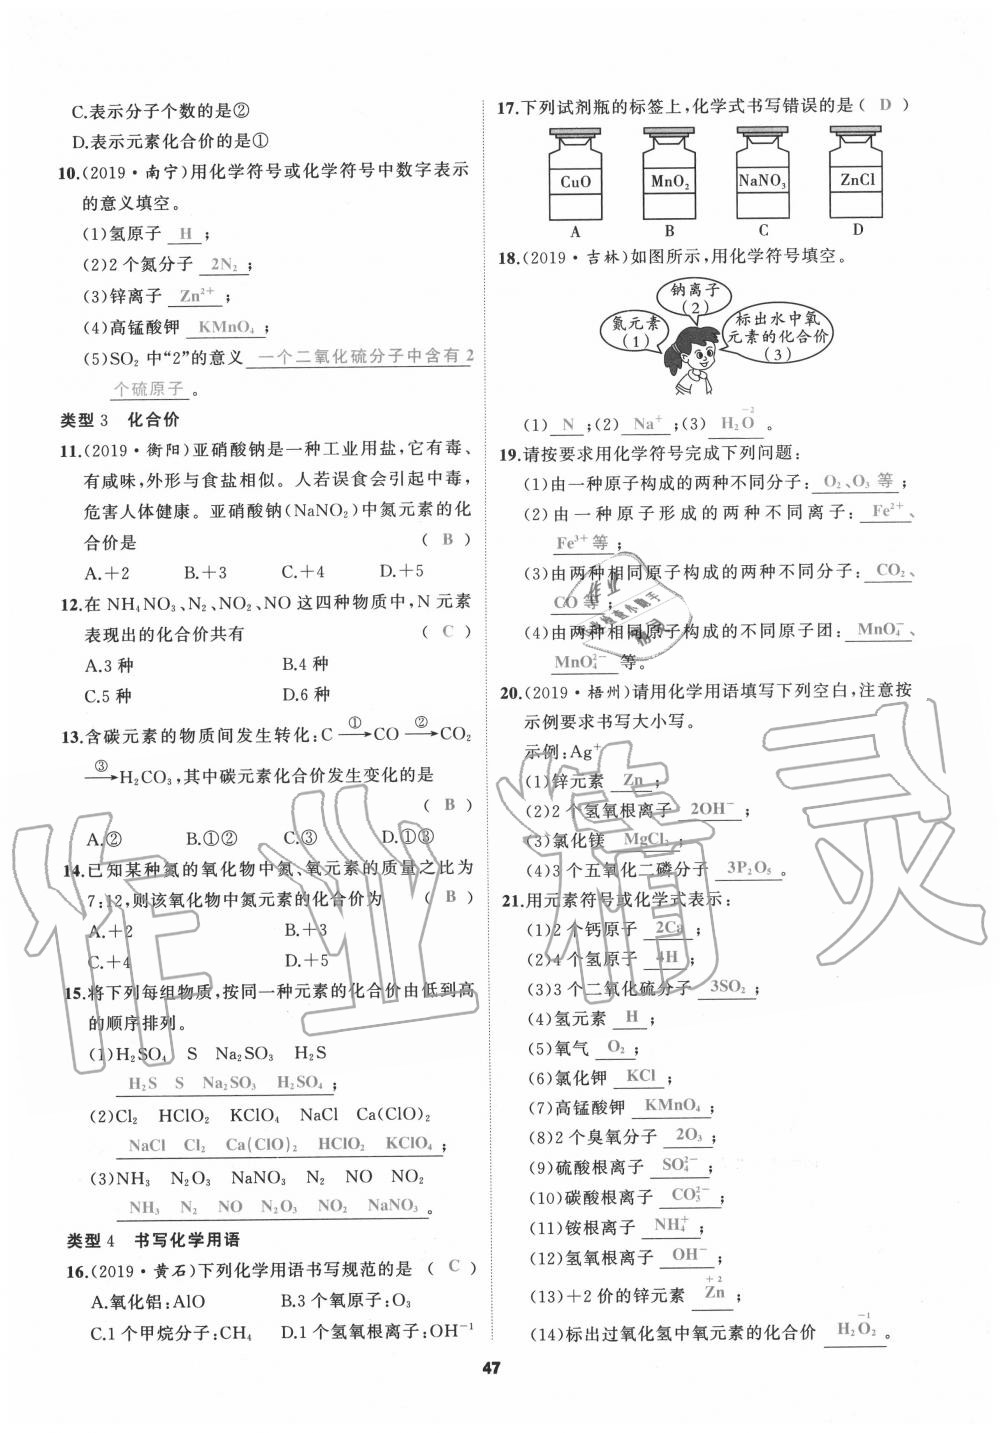 C.表示分子个数的是②
D.表示元素化合价的是①
10.(2019·南宁)用化学符号或化学符号中数字表示
的意义填空。
(1)氢原子 H ;
(2)2个氮分子 2N₂ ;
(3)锌离子 Zn²⁺ ;
(4)高锰酸钾 KMnO₄ ;
(5)SO₂ 中“2”的意义 一个二氧化硫分子中含有2
个硫原子 。
类型3 化合价
11.(2019·衡阳)亚硝酸钠是一种工业用盐,它有毒、
有咸味,外形与食盐相似。人若误食会引起中毒,
危害人体健康。亚硝酸钠(NaNO₂)中氮元素的化
合价是 ( B )
A.+2 B.+3 C.+4 D.+5
12.在 NH₄NO₃、N₂、NO₂、NO 这四种物质中,N元素
表现出的化合价共有 ( C )
A.3种 B.4种
C.5种 D.6种
13.含碳元素的物质间发生转化:C ①→ CO ②→ CO₂
③→ H₂CO₃,其中碳元素化合价发生变化的是
( B )
A.② B.①② C.③ D.①③
14.已知某种氮的氧化物中氮、氧元素的质量之比为
7:12,则该氧化物中氮元素的化合价为 ( B )
A.+2 B.+3
C.+4 D.+5
15.将下列每组物质,按同一种元素的化合价由低到高
的顺序排列。
(1)H₂SO₄ S Na₂SO₃ H₂S
H₂S S Na₂SO₃ H₂SO₄ ;
(2)Cl₂ HClO₂ KClO₄ NaCl Ca(ClO)₂
NaCl Cl₂ Ca(ClO)₂ HClO₂ KClO₄ ;
(3)NH₃ N₂O₃ NaNO₃ N₂ NO NO₂
NH₃ N₂ NO N₂O₃ NO₂ NaNO₃ 。
类型4 书写化学用语
16.(2019·黄石)下列化学用语书写规范的是 ( C )
A.氧化铝:AlO B.3个氧原子:O₃
C.1个甲烷分子:CH₄ D.1个氢氧根离子:OH⁻¹
17.下列试剂瓶的标签上,化学式书写错误的是( D )
CuO MnO₂ NaNO₃ ZnCl
A B C D
18.(2019·吉林)如图所示,用化学符号填空。
钠离子
(2)
氮元素
(1)
标出水中氧
元素的化合价
(3)
(1) N ;(2) Na⁺ ;(3) H₂O 。
-2
19.请按要求用化学符号完成下列问题:
(1)由一种原子构成的两种不同分子: O₂、O₃ 等 ;
(2)由一种原子形成的两种不同离子: Fe²⁺、
Fe³⁺等 ;
(3)由两种相同原子构成的两种不同分子: CO₂、
CO等 ;
(4)由两种相同原子构成的不同原子团: MnO₄⁻、
MnO₄²⁻ 等。
20.(2019·梧州)请用化学用语填写下列空白,注意按
示例要求书写大小写。
示例:Ag⁺
(1)锌元素 Zn ;
(2)2个氢氧根离子 2OH⁻ ;
(3)氯化镁 MgCl₂ ;
(4)3个五氧化二磷分子 3P₂O₅ 。
21.用元素符号或化学式表示:
(1)2个钙原子 2Ca ;
(2)4个氢原子 4H ;
(3)3个二氧化硫分子 3SO₂ ;
(4)氢元素 H ;
(5)氧气 O₂ ;
(6)氯化钾 KCl ;
(7)高锰酸钾 KMnO₄ ;
(8)2个臭氧分子 2O₃ ;
(9)硫酸根离子 SO₄²⁻ ;
(10)碳酸根离子 CO₃²⁻ ;
(11)铵根离子 NH₄⁺ ;
(12)氢氧根离子 OH⁻ ;
(13)+2价的锌元素 Zn ;
+2
(14)标出过氧化氢中氧元素的化合价 H₂O₂ 。
-1
47
作业精灵